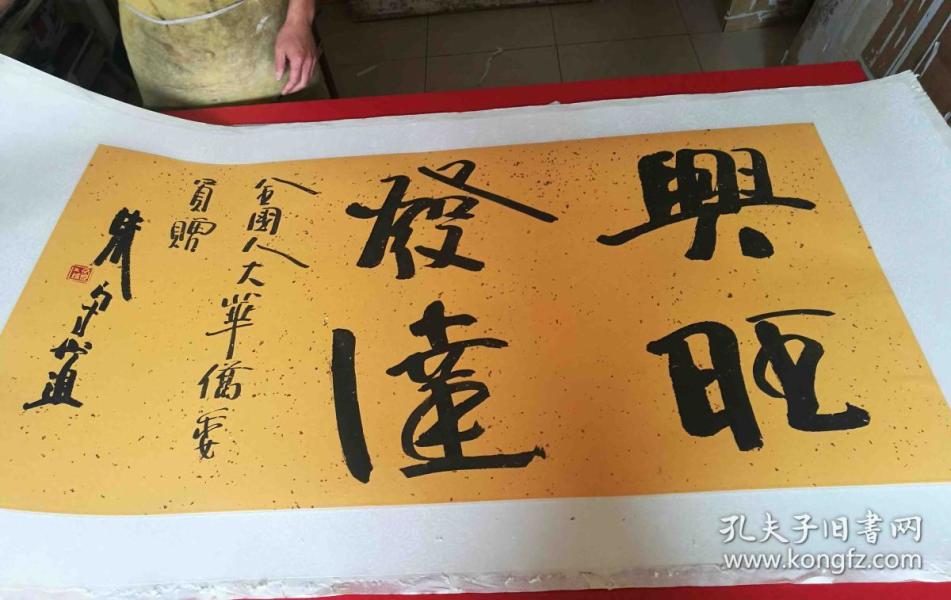 興旺
發達
全國人大華僑委
員贈
朱
孔夫子旧書网
www.kongfz.com